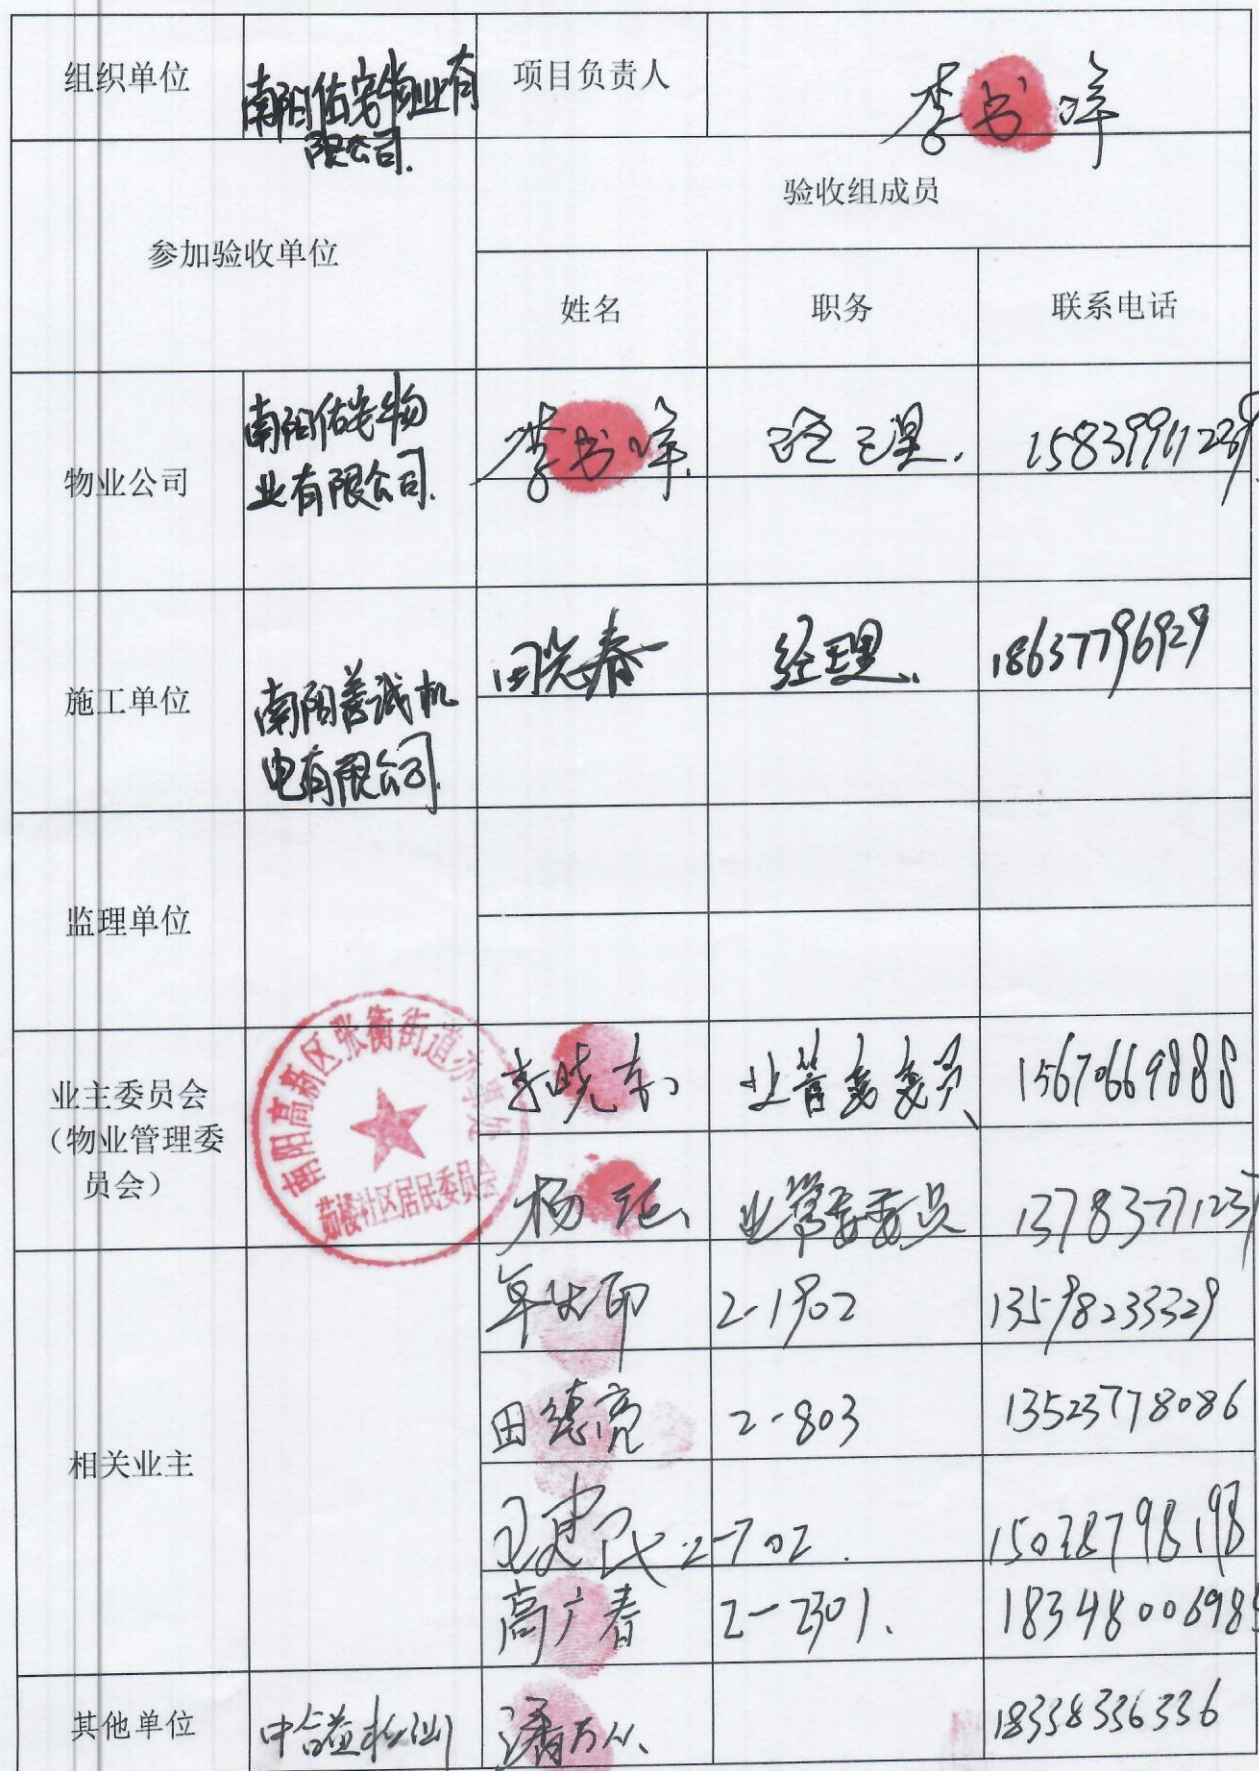 组织单位
南阳佑安物业有
限公司.
项目负责人
李书峰
参加验收单位
验收组成员
姓名
职务
联系电话
物业公司
南阳佑安物
业有限公司.
李书峰
经理.
施工单位
南阳善诚机
电有限公司
田晓春
经理.
18637796929
监理单位
业主委员会
（物业管理委
员会）
南阳高新区张衡街道办事处
茹楼社区居民委员会
李晓东
业管委委员
15670669888
杨
业管委委员
相关业主
2-1902
13598233329
田德亮
2-803
13523778086
王建民
2-702.
高广春
2-2301.
其他单位
中合益检测
潘
18338336336